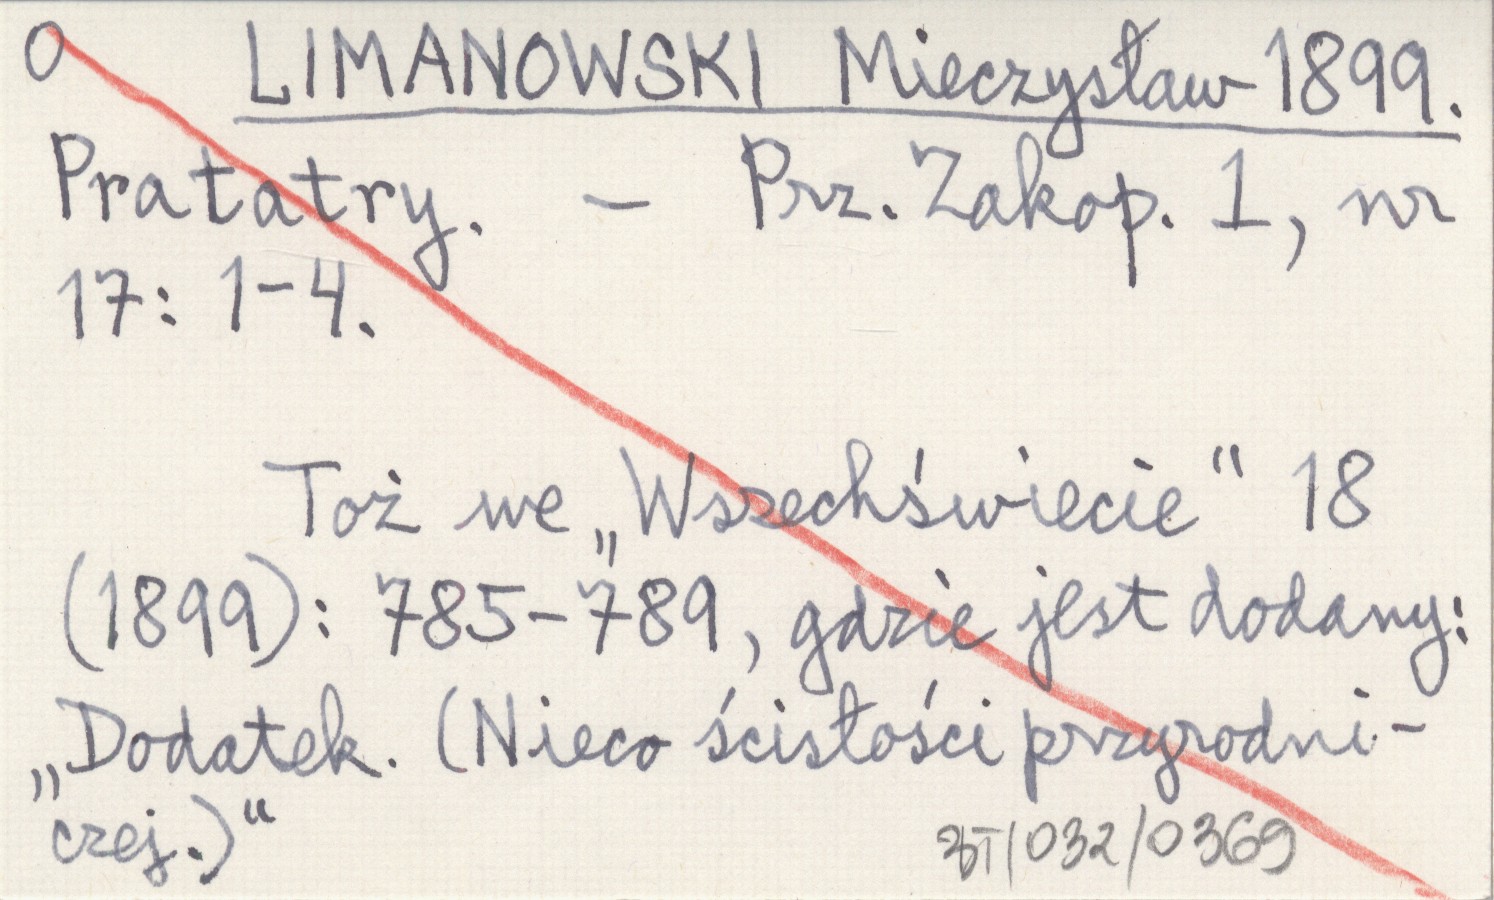 O LIMANOWSKI Mieczysław 1899.
Pratatry. – Prz. Zakop. 1, nr
17: 1-4.
Toż we „Wszechświecie" 18
(1899): 785-789, gdzie jest dodany:
„Dodatek. (Nieco ścisłości przyrodni-
czej.)"
BT/032/0369